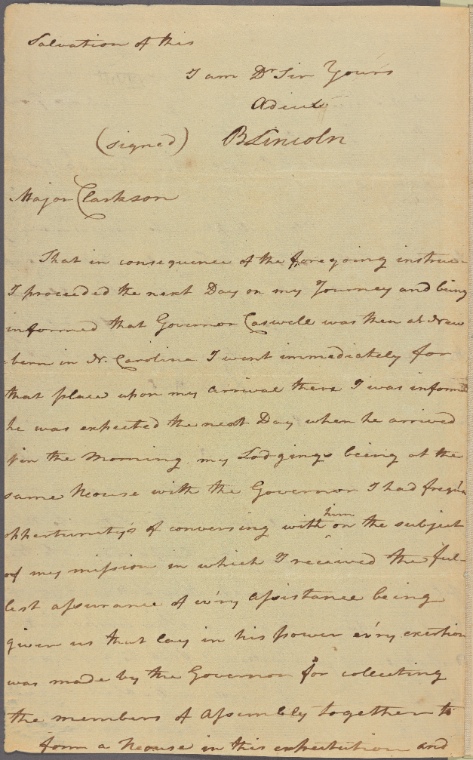 Salvation of this
I am Dr Sir Yours
Adieu
(signed) BLincoln
Major Clarkson
That in consequence of the foregoing instruc
I proceeded the next Day on my Journey and being
informed that Governor Caswell was then at New
bern in N. Carolina I went immediately for
that place upon my arrival there I was inform
he was expected the next Day when he arrived
in the Morning my Lodgings being at the
same House with the Governor I had freqn
opportunity's of conversing with him on the subject
of my mission in which I received the ful
lest assurance of ev'ry Assistance being
given us that lay in his power ev'ry exertion
was made by the Governor for collecting
the members of Assembly together to
form a House in this expectation and